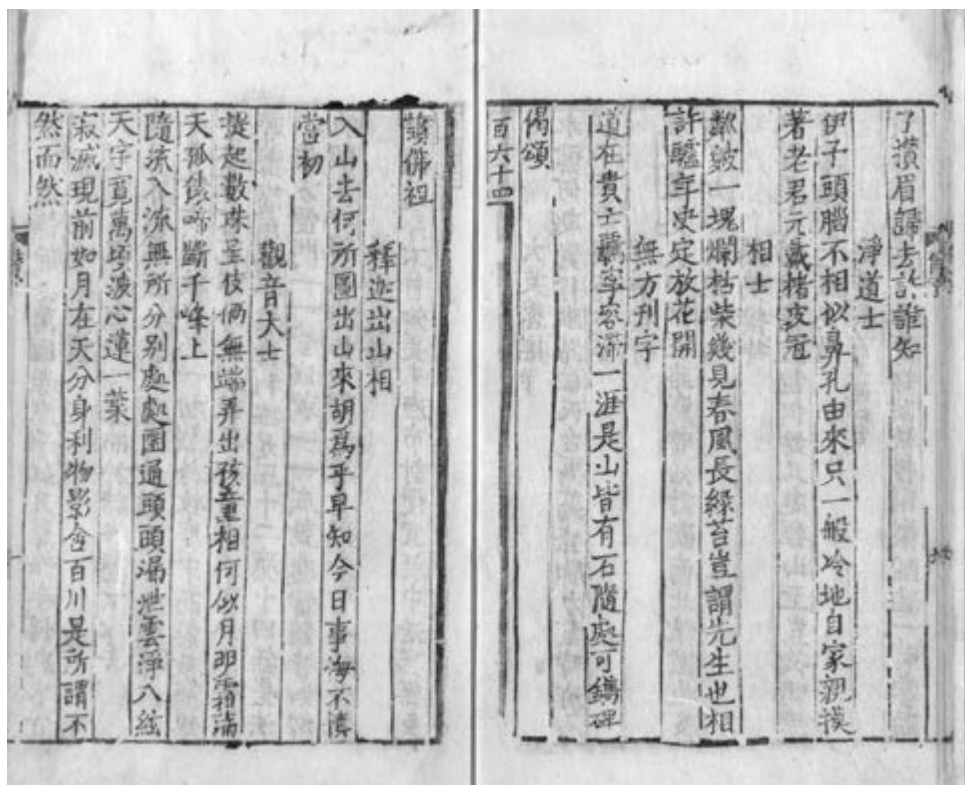 了攢眉歸去訴誰知
淨道士
伊子頭腦不相似鼻孔由來只一般冷地自家親摸
著老君元戴楮皮冠
相士
皺皴一塊爛枯柴幾見春風長綠苔豈謂先生也相
許驢年決定放花開
無方刊字
道在貴亡驥字容流一涯是山皆有石隨處可鐫碑
偈頌
百六十四
讚佛祖
釋迦出山相
入山去何所圖出山來胡為乎早知今日事悔不慎
當初
觀音大士
提起數珠呈伎倆無端弄出孩童相何似月明霜滿
天孤猿啼斷千峰上
隨流入流無所分別處處圓通頭頭漏泄雲淨八紘
天字寬萬頃波心蓮一葉
寂滅現前如月在天分身利物影含百川是所謂不
然而然